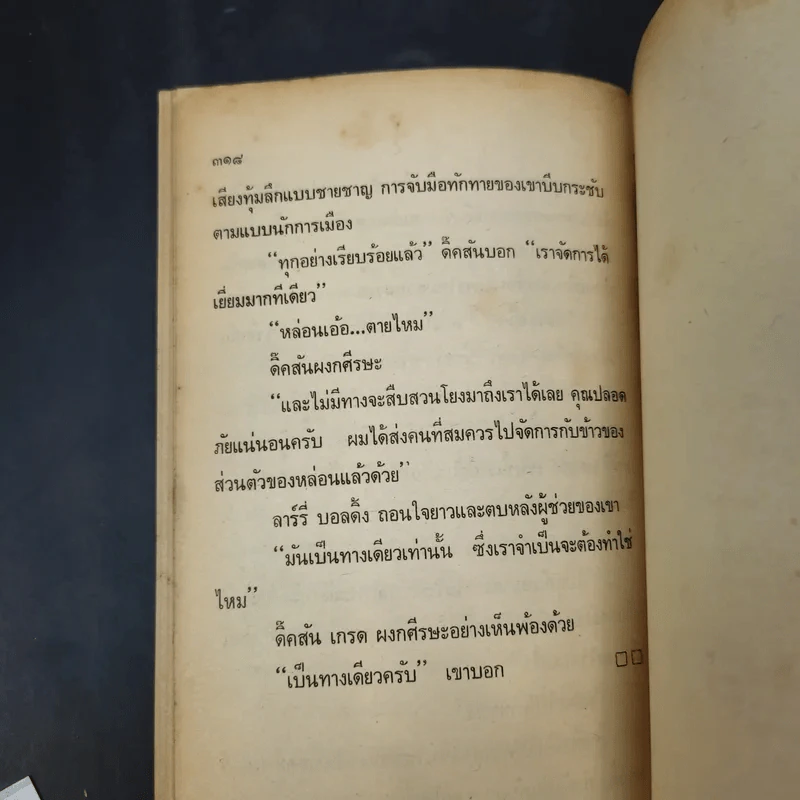 ๓๑๘
เสียงทุ้มลึกแบบชายชาญ การจับมือทักทายของเขาบีบกระชับ
ตามแบบนักการเมือง
“ทุกอย่างเรียบร้อยแล้ว” ดิ๊คสันบอก “เราจัดการได้
เยี่ยมมากทีเดียว”
“หล่อนเอ้อ...ตายไหม”
ดิ๊คสันผงกศีรษะ
“และไม่มีทางจะสืบสวนโยงมาถึงเราได้เลย คุณปลอด
ภัยแน่นอนครับ ผมได้ส่งคนที่สมควรไปจัดการกับข้าวของ
ส่วนตัวของหล่อนแล้วด้วย”
ลาร์รี่ บอลดิ้ง ถอนใจยาวและตบหลังผู้ช่วยของเขา
“มันเป็นทางเดียวเท่านั้น ซึ่งเราจำเป็นจะต้องทำใช่
ไหม”
ดิ๊คสัน เกรด ผงกศีรษะอย่างเห็นพ้องด้วย
“เป็นทางเดียวครับ” เขาบอก